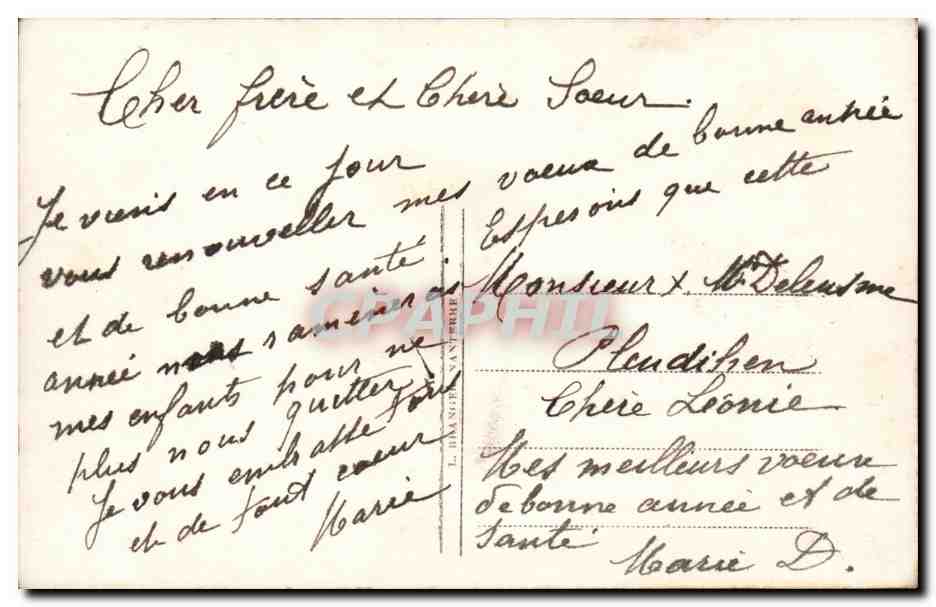 Cher frère et Chère Soeur.
Je viens en ce jour
vous renouveller mes voeux de bonne année
et de bonne santé Esperons que cette
année nous ramèneras
mes enfants pour ne
plus nous quitter.
Je vous embrasse tous
et de tout coeur
Marie
Monsieur x Me Deleusme
Pleudihen
Chère Léonie
Mes meilleurs voeux
de bonne année et de
santé
Marie D.
L. BRANGER NANTERRE
CPAPHIL